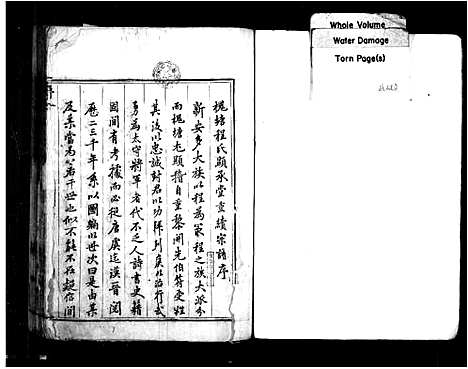 Whole Volume
Water Damage
Torn Page(s)
槐塘程氏顯承堂重續宗譜序
新安多大族以程為最程之族大派分
而槐塘尤顯稽自重黎開先伯符受姓
其後以忠誠封君以功降列侯
勇為太守將軍者代不乏人詩書史籍
國間有考據而必從唐虞迄漢晉閱
歷二三千年系以圖編以世次曰是由某
及某當為若干世也似不能不在疑信間